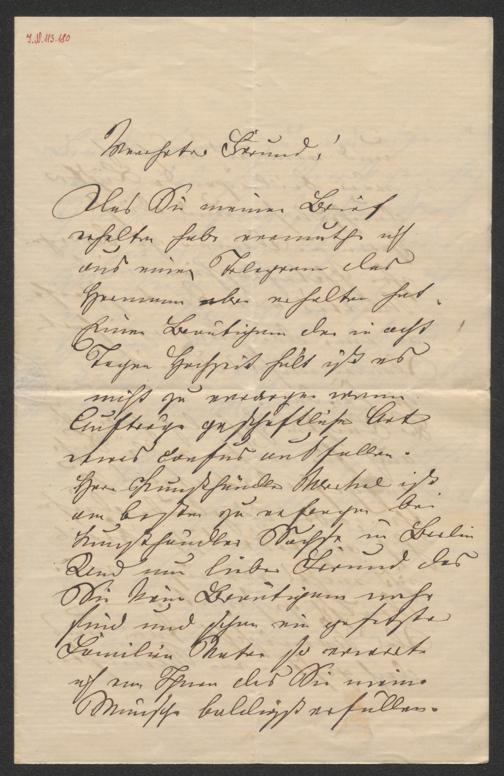 J.N. 113.180
Verehrter Freund!
Das Sie meinen Brief
erhalten habe vermuthe ich
aus einen Telegram das
Hermann aber erhalten hat.
Einen Bräutigam der in acht
Tagen Hochzeit hält ist es
nicht zu verargen wenn
Aufträge geschäftliche Art
etwas confus ausfallen.
Herr Kunsthändler ist
am besten zu erfragen bei
Kunsthändler Sachse in Berlin
Und nun lieber Freund das
Sie kein Bräutigam mehr
sind und schon ein gesetzter
Familien Vater so erwarte
ich von Ihnen das Sie meine
Wünsche baldigst erfüllen.